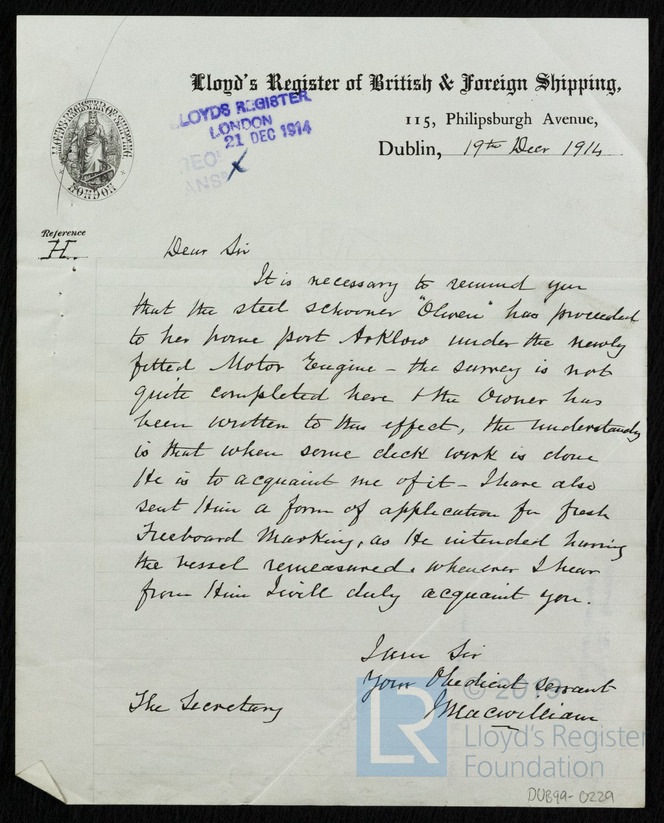 Lloyd's Register of British & Foreign Shipping,
115, Philipsburgh Avenue,
Dublin, 19th Decr 1914
LLOYDS REGISTER
LONDON
21 DEC 1914
REC
ANS
LLOYD'S REGISTER OF SHIPPING
LONDON
Reference
H.
Dear Sir
It is necessary to remind you
that the steel schooner "Olwen" has proceeded
to her home port Arklow under the newly
fitted Motor Engine – the survey is not
quite completed here & the Owner has
been written to this effect, the understanding
is that when some deck work is done
He is to acquaint me of it – I have also
sent Him a form of application for fresh
Freeboard Marking, as He intended having
the vessel remeasured. whenever I hear
from Him I will duly acquaint you.
I am Sir
Your Obedient Servant
JMacwilliam
The Secretary
© 2019
LR
Lloyd's Register
Foundation
DUB99-0229